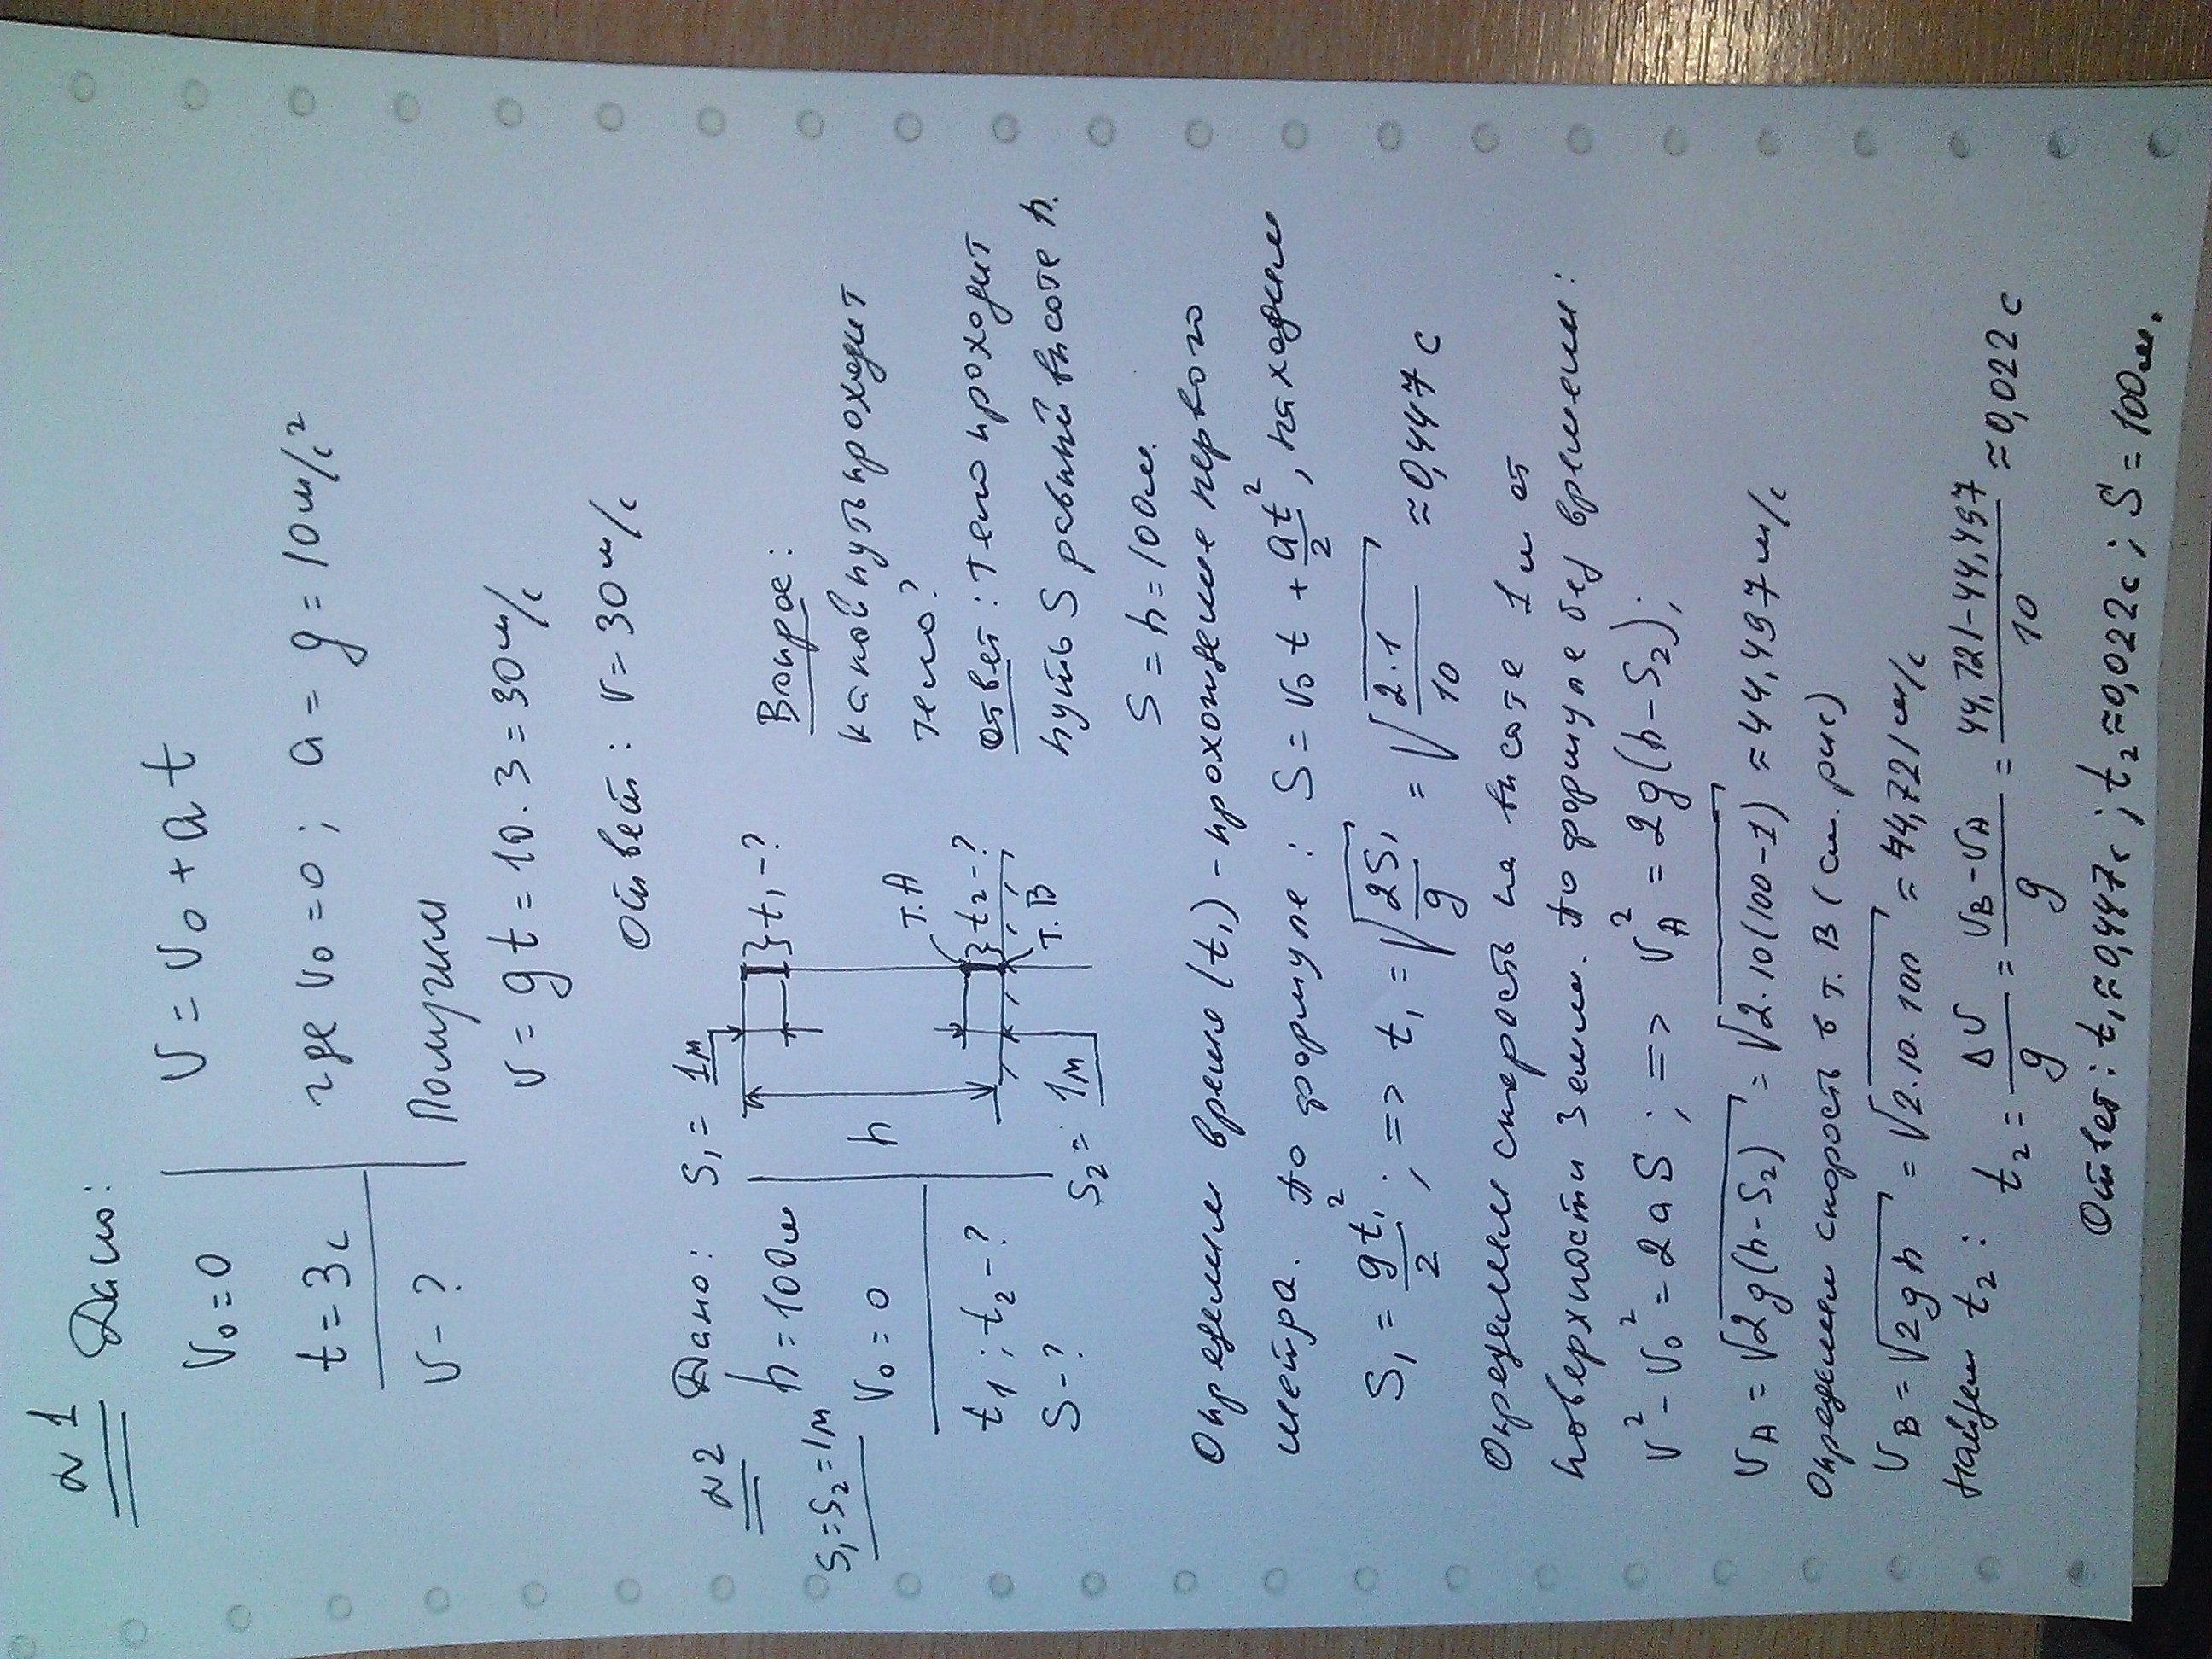 №1 Дано:
V₀=0
t=3с
V-?
V = V₀ + at
где V₀=0; a = g = 10м/с²
Получим
V = gt = 10·3 = 30м/с
Ответ: V=30м/с
№2 Дано:
h=100м
S₁=S₂=1м
V₀=0
t₁; t₂-?
S-?
S₁=1м
}t₁-?
h
т.А
}t₂-?
т.В
S₂=1м
Вопрос:
какой путь проходит
тело?
ответ: тело проходит
путь S равный высоте h.
S=h=100м.
Определим время (t₁) - прохождение первого
метра. по формуле: S=V₀t+at²/2, находим
S₁=gt₁²/2; => t₁=√(2S₁/g) = √(2·1/10) ≈0,447с
Определим скорость на высоте 1м от
поверхности Земли. по формуле без времени:
V²-V₀²=2aS; => V_A²=2g(h-S₂);
V_A=√(2g(h-S₂)) = √(2·10(100-1)) ≈44,497м/с
Определим скорость в т. В (см. рис)
V_B=√(2gh) = √(2·10·100) ≈ 44,721м/с
Найдем t₂: t₂=ΔV/g = (V_B-V_A)/g = (44,721-44,497)/10 ≈0,022с
Ответ: t₁≈0,447с; t₂≈0,022с; S=100м.